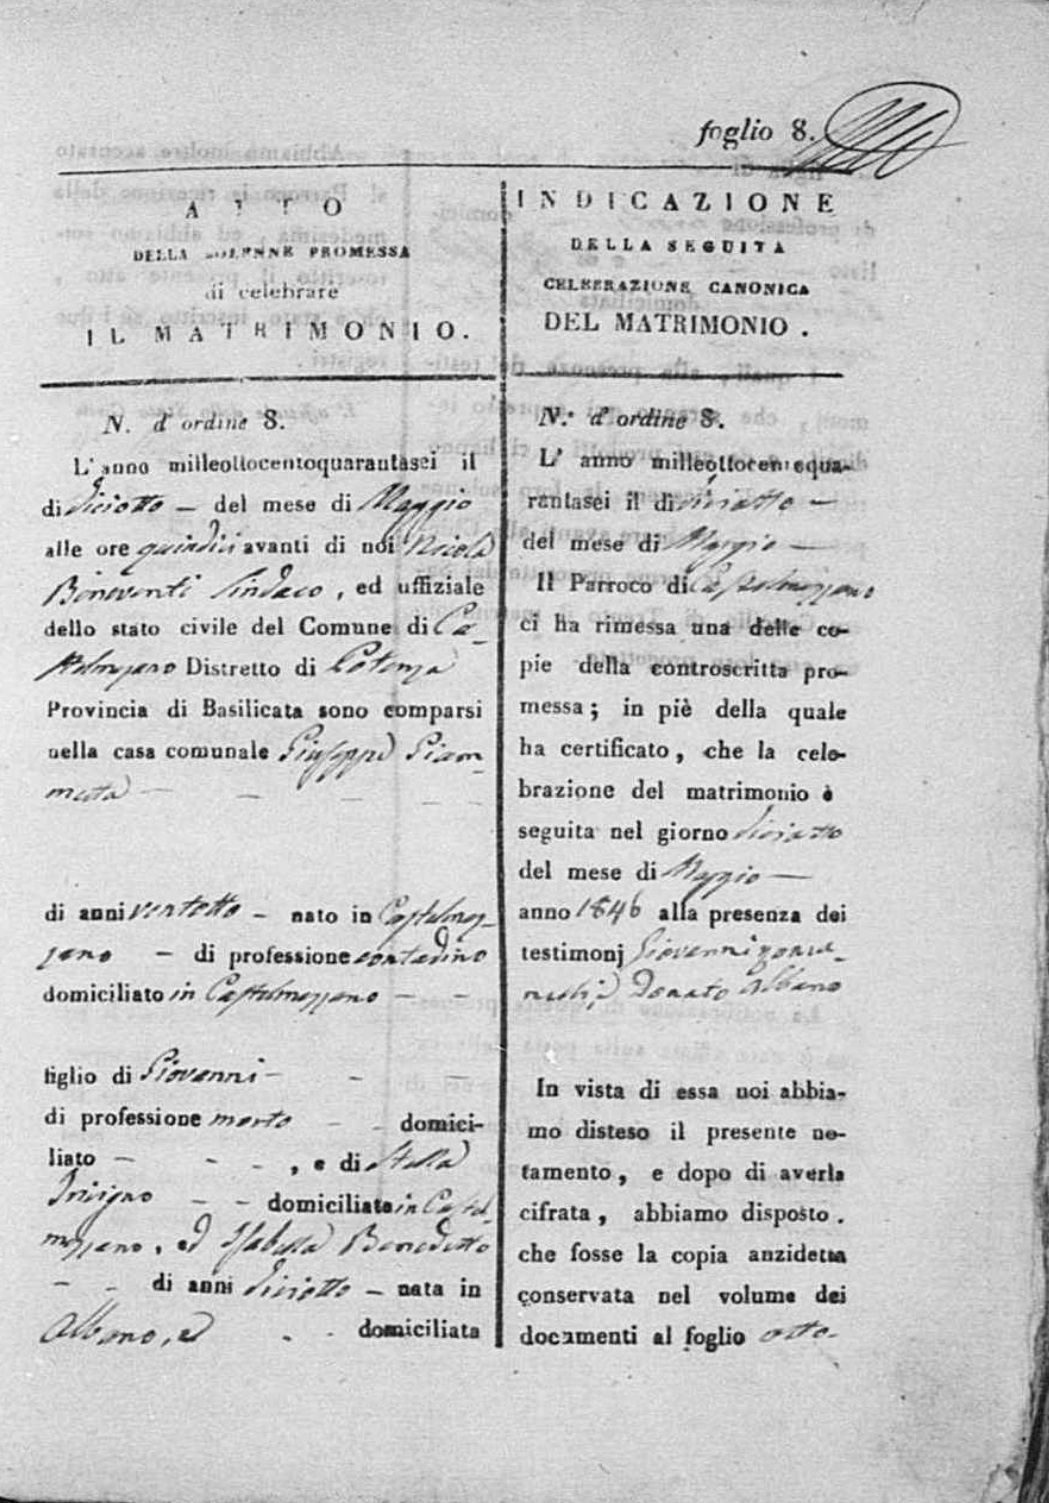 foglio 8.
ATTO
DELLA SOLENNE PROMESSA
di celebrare
IL MATRIMONIO.
N. d'ordine 8.
L'anno milleottocentoquarantasei il
di diciotto — del mese di Maggio
alle ore quindici avanti di noi Nicola
Beneventi Sindaco, ed uffiziale
dello stato civile del Comune di Ca-
stelmezzano Distretto di Potenza
Provincia di Basilicata sono comparsi
nella casa comunale Giuseppe Giam-
metta
di anni ventotto — nato in Castelmez-
zano — di professione contadino
domiciliato in Castelmezzano
figlio di Giovanni
di professione morto domici-
liato — , e di Stella
Trivigno domiciliata in Castel-
mezzano, ed Isabella Benedetto
di anni diciotto — nata in
Albano, ed domiciliata
INDICAZIONE
DELLA SEGUITA
CELEBRAZIONE CANONICA
DEL MATRIMONIO.
N.° d'ordine 8.
L' anno milleottocentoqua-
rantasei il di diciotto —
del mese di Maggio —
Il Parroco di Castelmezzano
ci ha rimessa una delle co-
pie della controscritta pro-
messa; in piè della quale
ha certificato, che la cele-
brazione del matrimonio è
seguita nel giorno diciotto
del mese di Maggio —
anno 1846 alla presenza dei
testimonj Giovanni
Donato Albano
In vista di essa noi abbia-
mo disteso il presente no-
tamento, e dopo di averla
cifrata, abbiamo disposto.
che fosse la copia anzidetta
conservata nel volume dei
documenti al foglio otto.